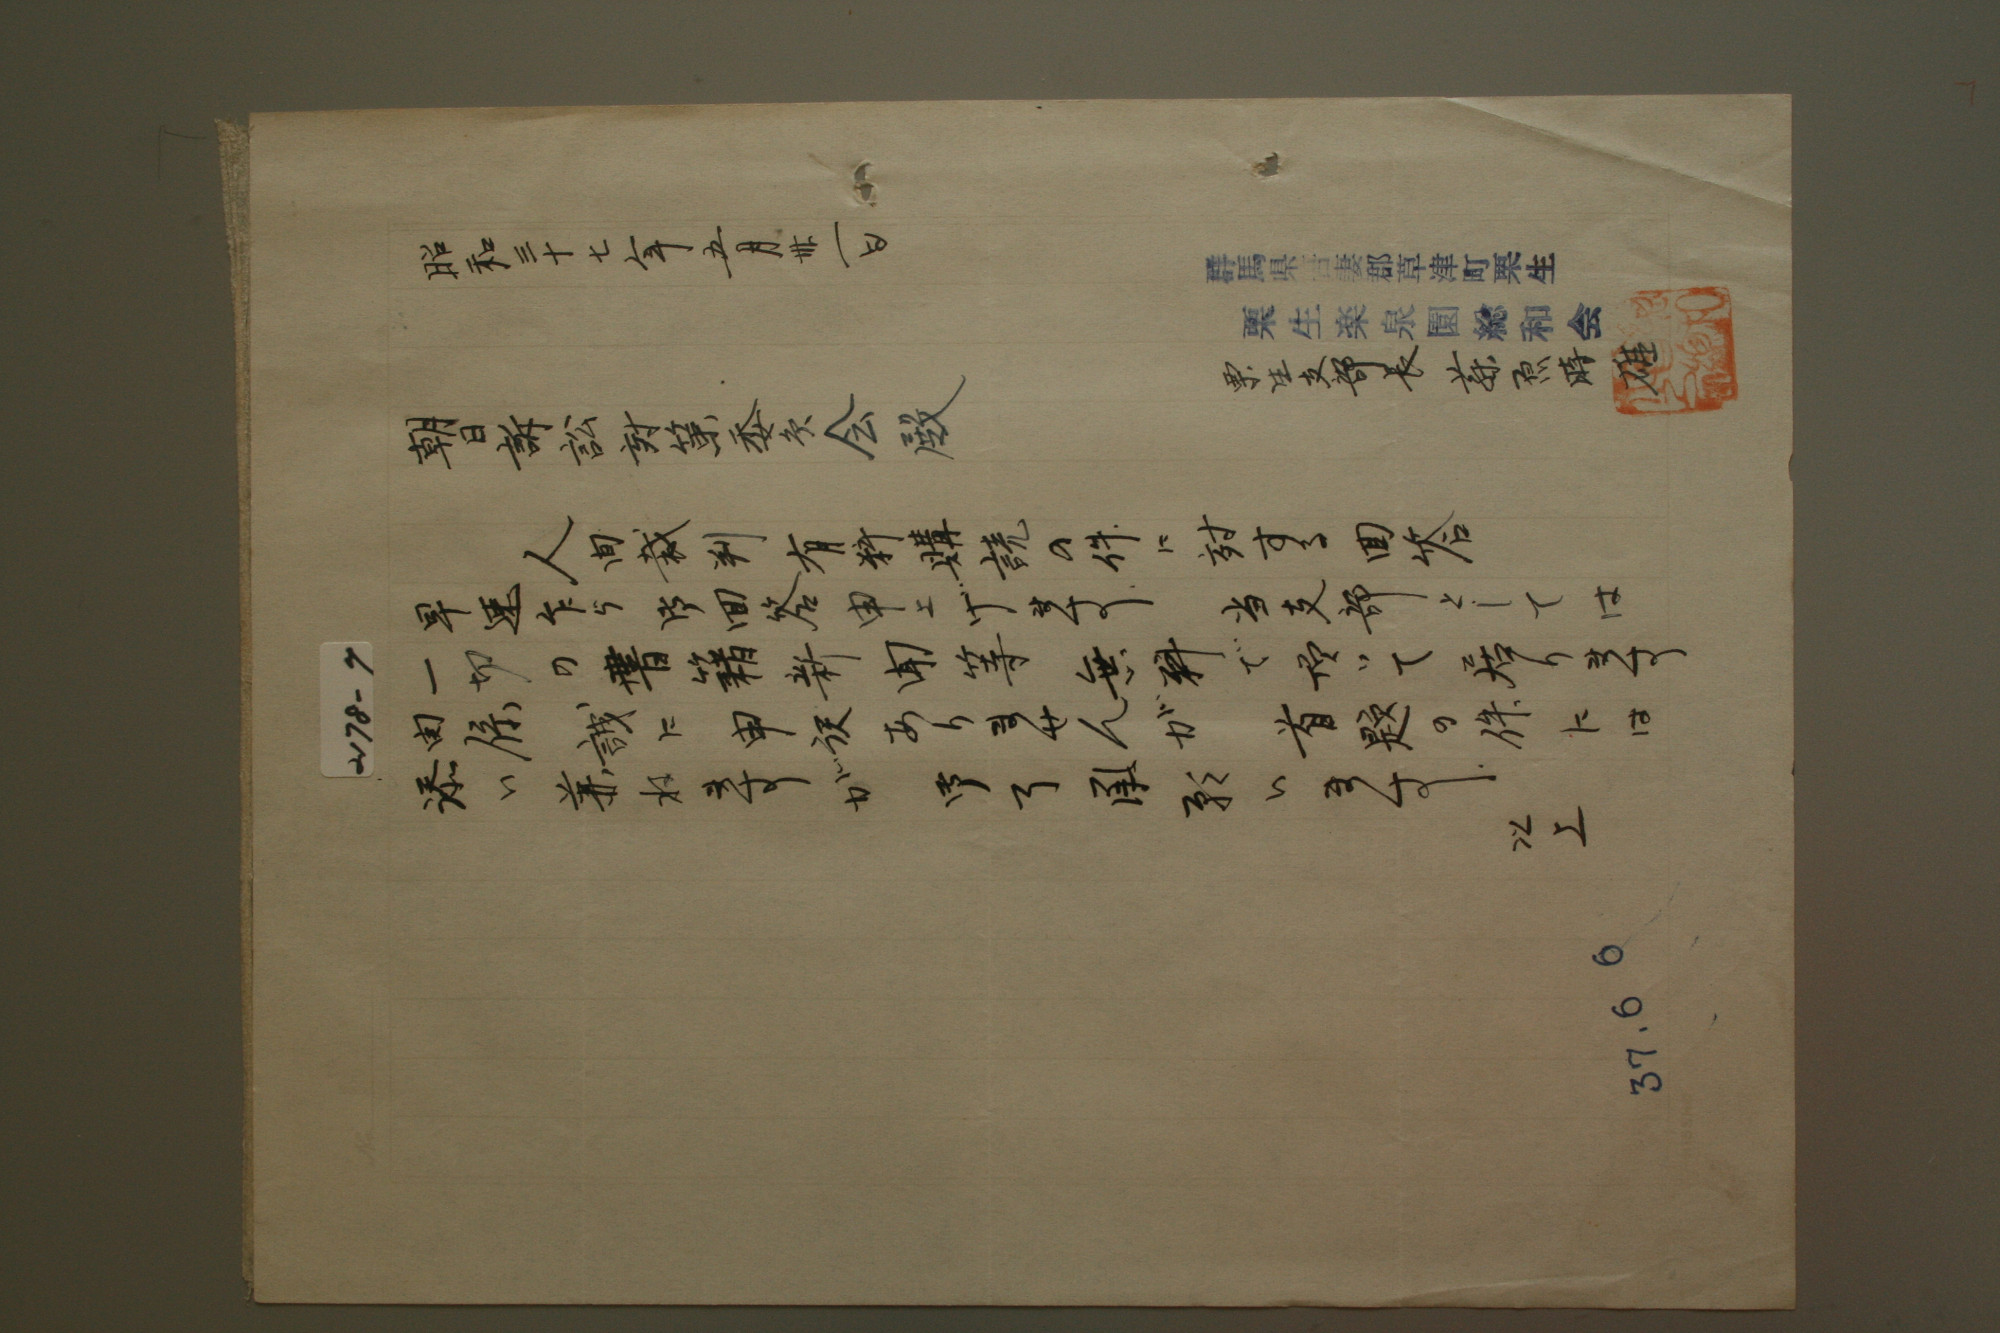 昭和三十七年五月卅一日
群馬県吾妻郡草津町栗生
栗生楽泉園総和会
栗生支部長
朝日訴訟対策委員会殿
人間裁判有料購読の件に対する回答
早速乍ら御回答申上げます 当支部としては
一切の書籍新聞等無料で頂いて居ります
関係、誠に申訳ありませんが 首題の件には
添い兼ねますが 御了承願います。
以上
37.6 6
2178-7